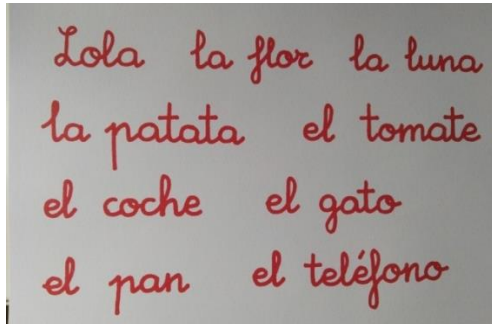 Lola la flor la luna
la patata el tomate
el coche el gato
el pan el teléfono